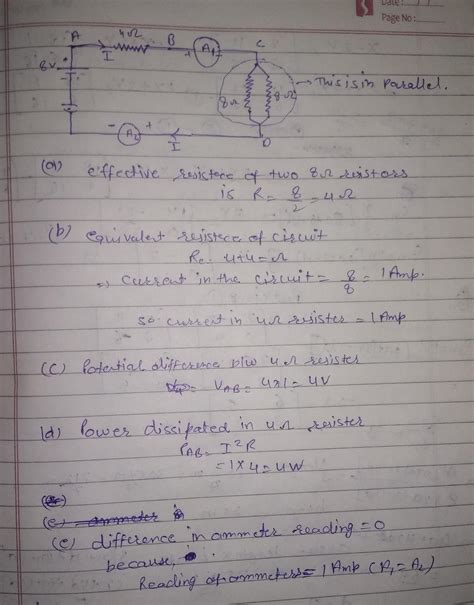 Date: / /
Page No:
A 4Ω B A1 C
I + -
8V
8Ω 8Ω → This is in parallel.
- A2 + I D
(a) effective resistece of two 8Ω resistors
is R = 8/2 = 4Ω
(b) equivalent resistece of circuit
Re 4+4 = Ω
=> Current in the circuit = 8/8 = 1 Amp.
so current in 4Ω resister = 1 Amp
(c) Potential difference b/w 4Ω resister
= VAB = 4x1 = 4V
(d) Power dissipated in 4Ω resister
PAB = I²R
= 1 x 4 = 4W
(e) ammeter is
(e) difference in ammeter reading = 0
because,
Reading of ammeters = 1 Amp (A1 = A2)